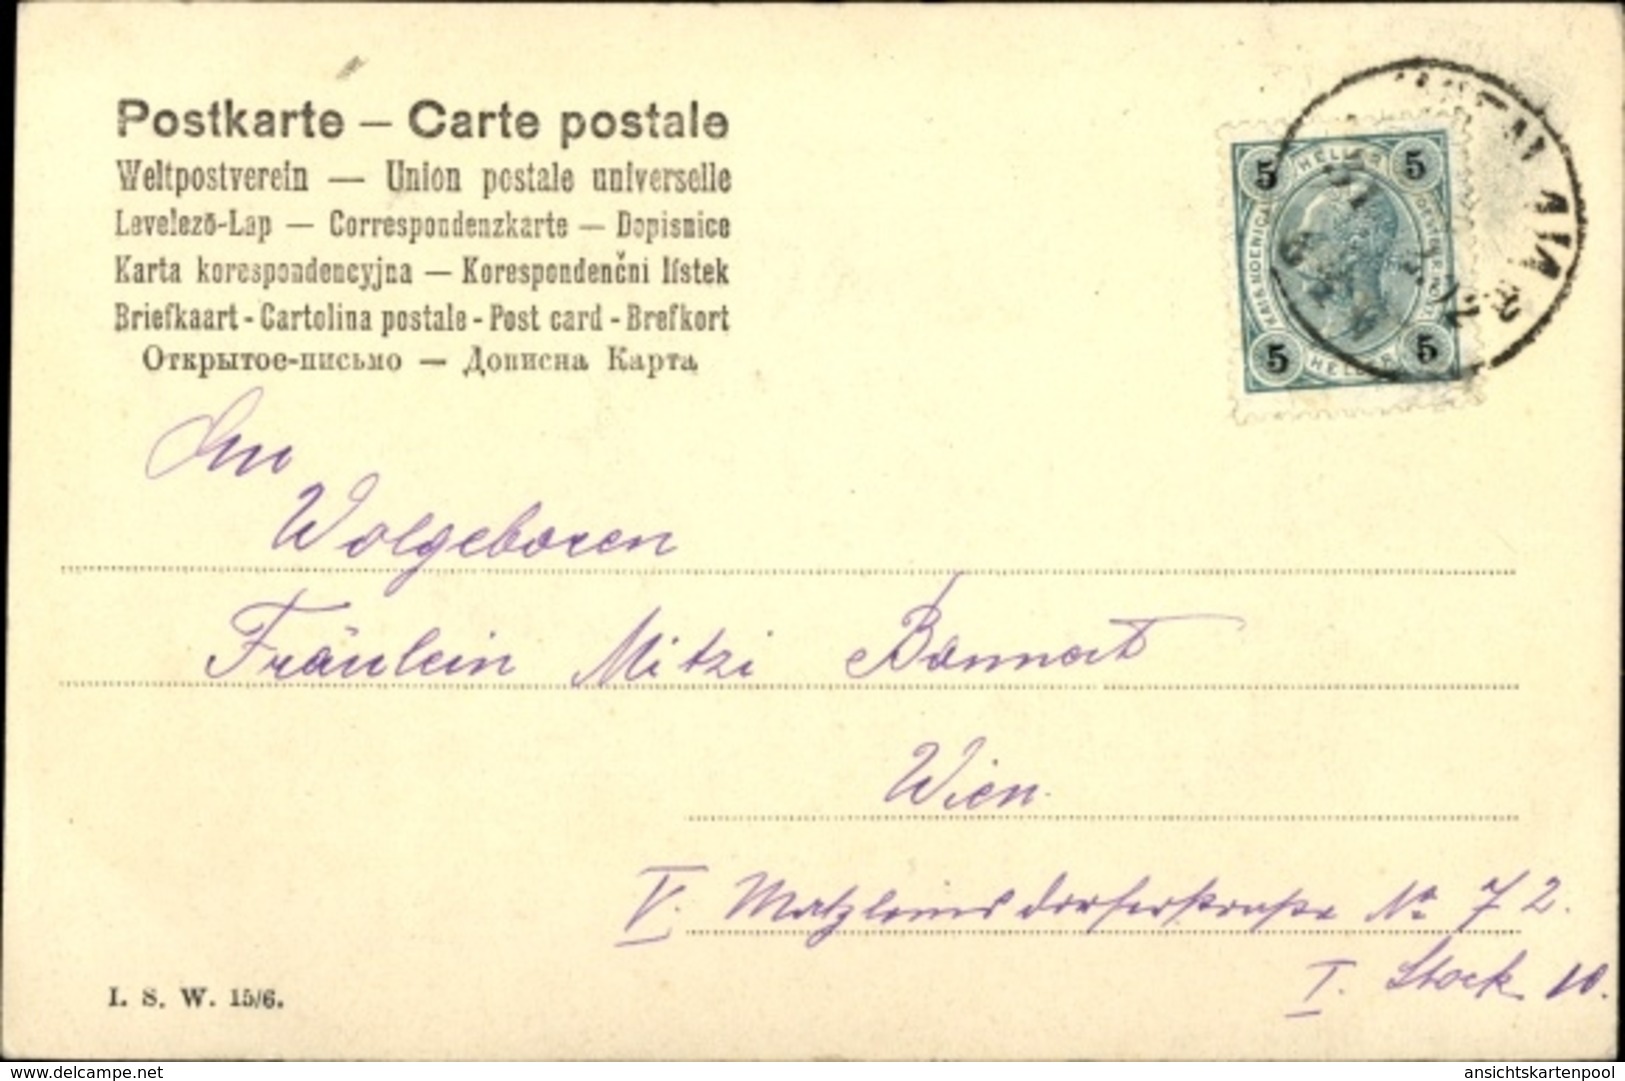 Postkarte — Carte postale
Weltpostverein — Union postale universelle
Levelező-Lap — Correspondenzkarte — Dopisnice
Karta korespondencyjna — Korespondenční lístek
Briefkaart - Cartolina postale - Post card - Brefkort
Открытое-письмо — Дописна Карта
5 HELLER 5
5 HELLER 5
An
Wolgeboren
Fräulein Mitzi Bannert
Wien.
V. Matzleinsdorferstraße No 72.
I. Stock 10.
I. S. W. 15/6.
www.delcampe.net
ansichtskartenpool